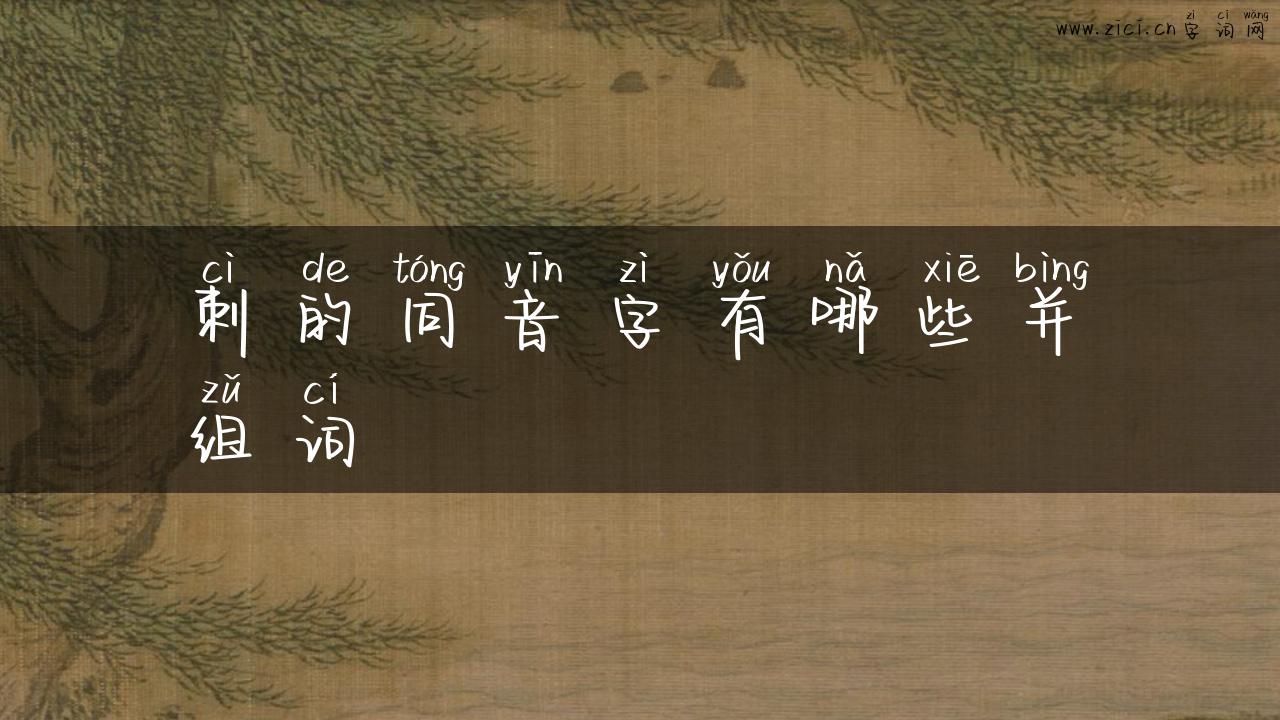 zì cí wǎng
www.zici.cn 字 词 网
cì de tóng yīn zì yǒu nǎ xiē bìng
刺 的 同 音 字 有 哪 些 并
zǔ cí
组 词